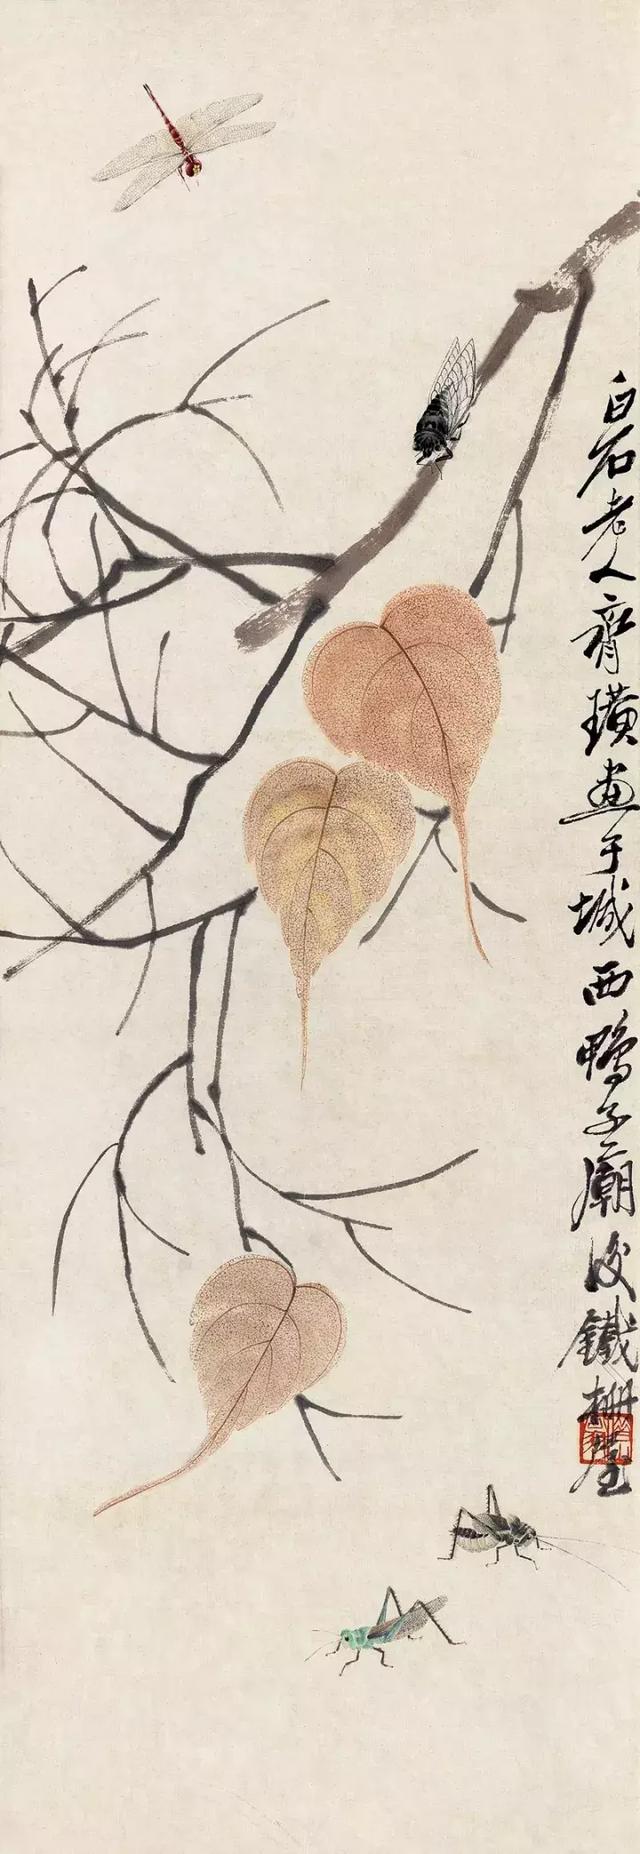 白石老人齊璜畫于城西鴨子廟側鐵柵屋